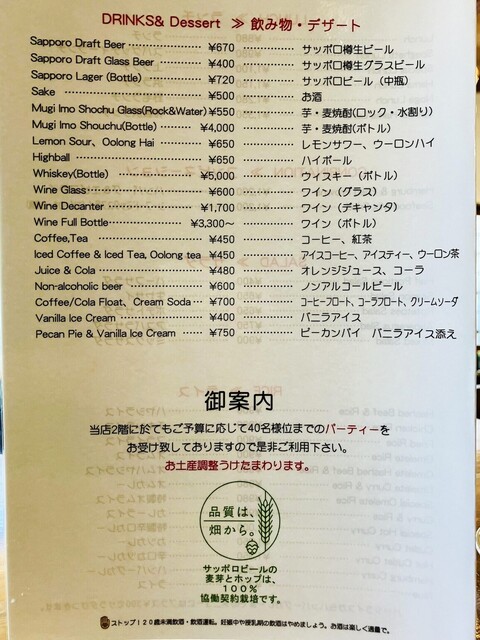 DRINKS& Dessert ≫ 飲み物・デザート
Sapporo Draft Beer ¥670 サッポロ樽生ビール
Sapporo Draft Glass Beer ¥400 サッポロ樽生グラスビール
Sapporo Lager (Bottle) ¥720 サッポロビール（中瓶）
Sake ¥500 お酒
Mugi Imo Shochu Glass(Rock&Water) ¥550 芋・麦焼酎(ロック・水割り)
Mugi Imo Shouchu(Bottle) ¥4,000 芋・麦焼酎(ボトル)
Lemon Sour、Oolong Hai ¥650 レモンサワー、ウーロンハイ
Highball ¥650 ハイボール
Whiskey(Bottle) ¥5,000 ウイスキー（ボトル）
Wine Glass ¥600 ワイン（グラス）
Wine Decanter ¥1,700 ワイン（デキャンタ）
Wine Full Bottle ¥3,300～ ワイン（ボトル）
Coffee,Tea ¥450 コーヒー、紅茶
Iced Coffee & Iced Tea, Oolong tea ¥450 アイスコーヒー、アイスティー、ウーロン茶
Juice & Cola ¥480 オレンジジュース、コーラ
Non-alcoholic beer ¥600 ノンアルコールビール
Coffee/Cola Float、Cream Soda ¥700 コーヒーフロート、コーラフロート、クリームソーダ
Vanilla Ice Cream ¥400 バニラアイス
Pecan Pie & Vanilla Ice Cream ¥750 ピーカンパイ バニラアイス添え
御案内
当店2階に於てもご予算に応じて40名様位までのパーティーを
お受け致しておりますので是非ご利用下さい。
お土産調整うけたまわります。
品質は、
畑から。
サッポロビールの
麦芽とホップは、
100%
協働契約栽培です。
ストップ！20歳未満飲酒・飲酒運転。妊娠中や授乳期の飲酒はやめましょう。お酒は楽しく適量で。